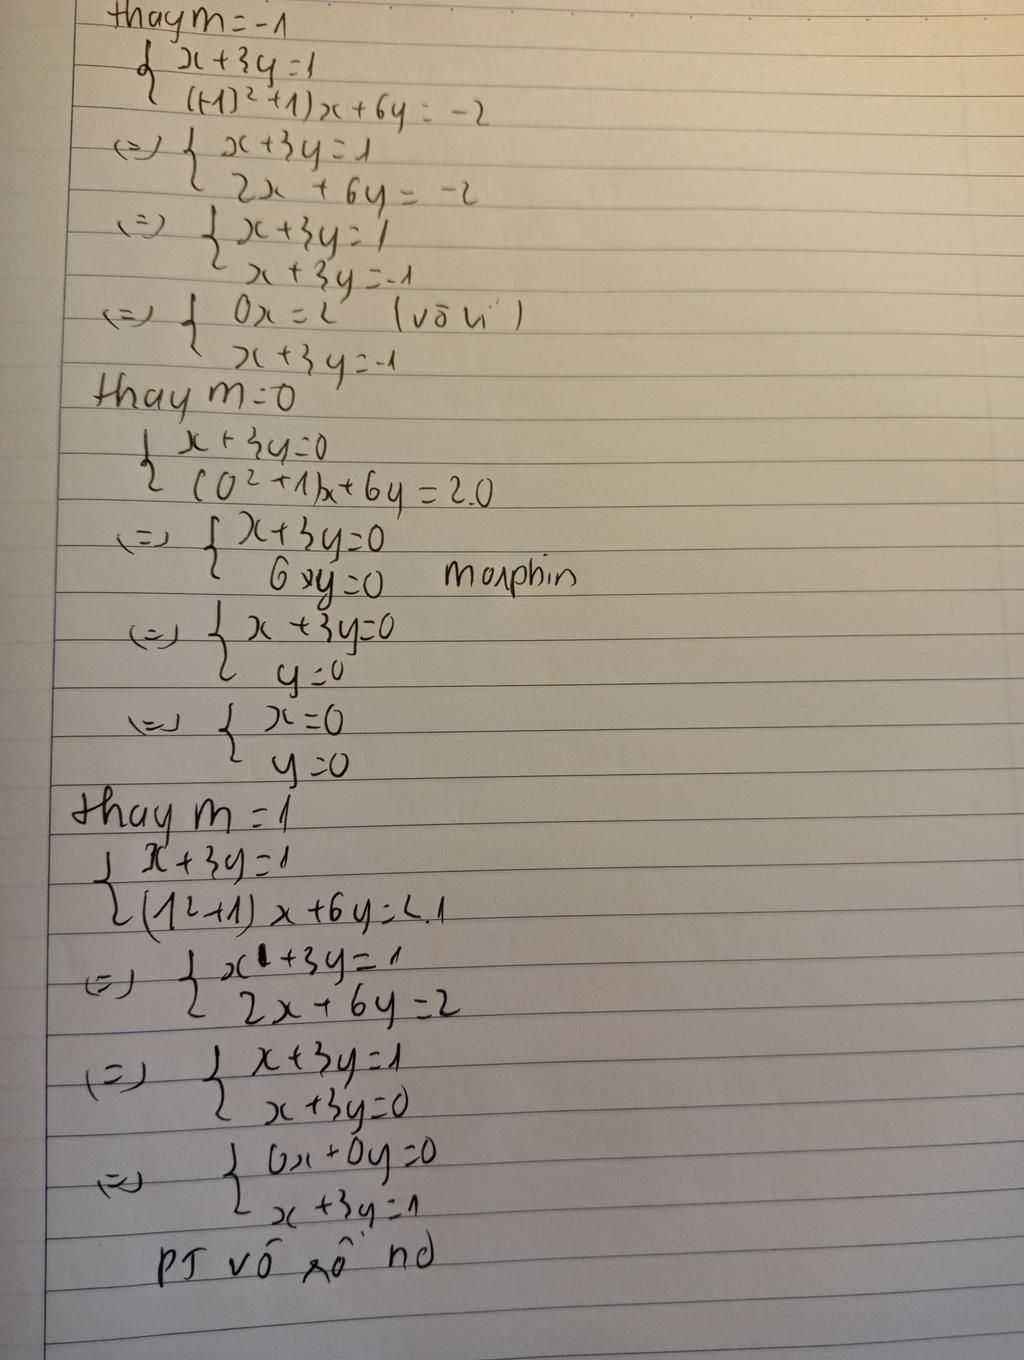 thay m = -1
{ x + 3y = 1
((-1)² + 1)x + 6y = -2
(=) { x + 3y = 1
2x + 6y = -2
(=) { x + 3y = 1
x + 3y = -1
(=) { 0x = 2 (vô lí)
x + 3y = -1
thay m = 0
{ x + 3y = 0
(0² + 1)x + 6y = 2.0
(=) { x + 3y = 0
6y = 0 morphin
(=) { x + 3y = 0
y = 0
(=) { x = 0
y = 0
thay m = 1
{ x + 3y = 1
(1² + 1)x + 6y = 2.1
(=) { x + 3y = 1
2x + 6y = 2
(=) { x + 3y = 1
x + 3y = 0
(=) { 0x + 0y = 0
x + 3y = 1
PT vô số nd